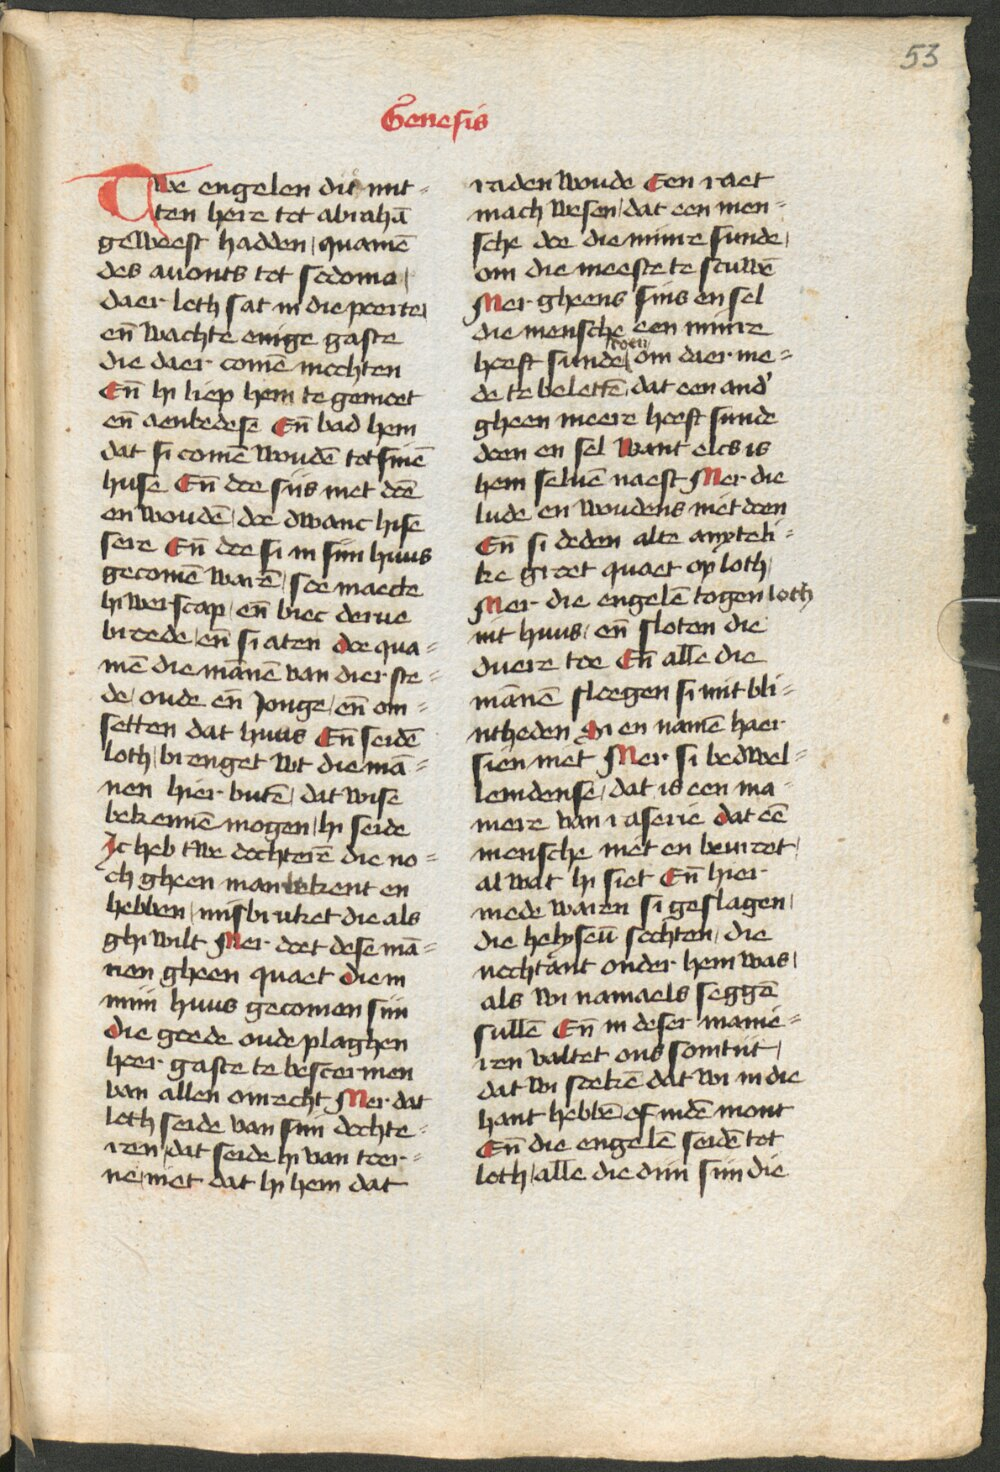 53
Genesis
Twe engelen die mit-
ten here tot abrahā
geweest hadden / quamē
des auonts tot sodoma /
daer loth sat in die poorte /
en̄ wachte enige gaste
die daer comē mochten
En̄ hi liep hem te gemoet
en̄ aenbedese En̄ bad hem
dat si comē woudē tot sinē
huse En̄ doe siis niet doē
en woudē / doe dwanc hise
sere En̄ doe si in siin huus
gecomē warē / soe maecte
hi werscap / en̄ biec derue
broede / en̄ si aten doe qua-
mē die mānē van dier ste-
de / oude en̄ Jonge / en̄ om-
setten dat huus En̄ seidē
loth / brenget wt die mā-
nen hier butē / dat wise
bekennē mogen / hi seide
Jc heb twe dochterē die no-
ch gheen man bekent en
hebben / misbruket die als
ghi wilt Mer doet dese mā-
nen gheen quaet diem
miin huus gecomen siin
die goede oude plaghen
heer gaste te bescermen
van allen onrecht Mer dat
loth seide van siin dochte-
ren / dat seide hi van toer-
ne / niet dat hi hem dat
raden woude Een raet
mach wesen / dat een men-
sche doe die minre sunde /
om die meeste te scuwē
Mer gheens sins en sel
die mensche een minre
heeft sunde / doen om daer me-
de te belettē / dat een and'
gheen meere heeft sunde
doen en sel Want elcs is
hem seluē naest Mer die
lude en woudens niet doen
En̄ si deden alte anxteli-
ke groet quaet op loth /
Mer die engelē togen loth
int huus / en̄ sloten die
duere toe En̄ alle die
mānē sloegen si mit bli-
ntheden Si en namē haer
sien niet Mer si bedwel-
lemdense / dat is een ma-
niere van raserie dat eē
mensche niet en beuroet /
al wat hi siet En̄ hier
mede waren si geslagen /
die helyseū sochten / die
nochtant onder hem was /
als wi namaels seggē
sullē En̄ in deser manie-
ren valtet ons somtiit /
dat wi soekē dat wi in die
hant hebbē of indē mont
En̄ die engelē seidē tot
loth / alle die diin siin die